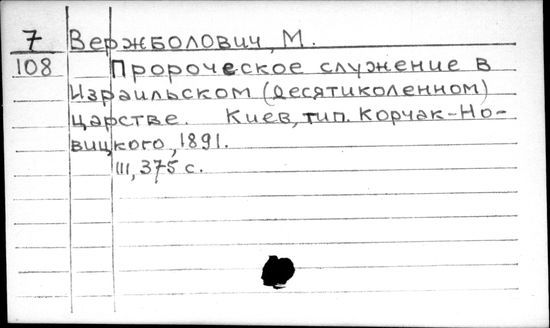 7 Вержболович, М.
108 Пророческое служение в
Израильском (десятиколенном)
царстве. Киев, тип. Корчак-Но-
вицкого, 1891.
III, 375 с.